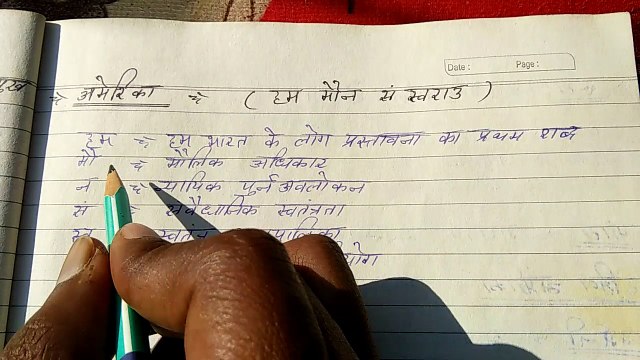 Date : Page :
⇒ अमेरिका ⇒ ( हम मौन सं स्वराउ )
हम ⇒ हम भारत के लोग प्रस्तावना का प्रथम शब्द
मौ ⇒ मौलिक अधिकार
न ⇒ न्यायिक पुर्नअवलोकन
सं ⇒ संवैधानिक स्वतंत्रता